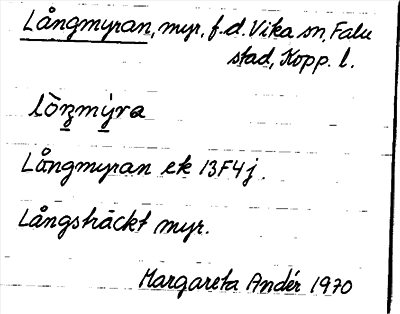 Långmyran, myr, f.d. Vika sn, Falu
stad, Kopp. l.
Långmyran ek 13F4j.
Långsträckt myr.
Margareta Andér 1970